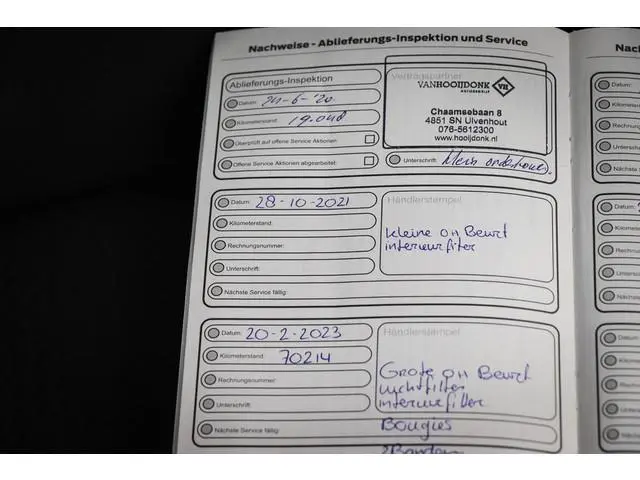 Nachweise - Ablieferungs-Inspektion und Service
Nach
Ablieferungs-Inspektion
Datum: 24-6-'20
Kilometerstand: 19.048
Überprüft auf offene Service Aktionen:
Offene Service Aktionen abgearbeitet:
Vertragspartner
VAN HOOIJDONK VH
AUTOBEDRIJF
Chaamsebaan 8
4851 SN Ulvenhout
076-5612300
www.hooijdonk.nl
Unterschrift: Klein onderhoud.
Datum: 28-10-2021
Kilometerstand:
Rechnungsnummer:
Unterschrift:
Nächste Service fällig:
Händlerstempel
kleine OH Beurt
interieurfilter
Datum: 20-2-2023
Kilometerstand: 70214
Rechnungsnummer:
Unterschrift:
Nächste Service fällig:
Händlerstempel
Grote OH Beurt
luchtfilter
interieurfilter
Bougies
2 Banden
Datum:
Kilometerstand:
Rechnungsnummer:
Unterschrift:
Nächste Se
Datum:
Kilometers
Rechnungs
Unterschri
Nächste S
Datum:
Kilomete
Rechnu
Unters
Näch